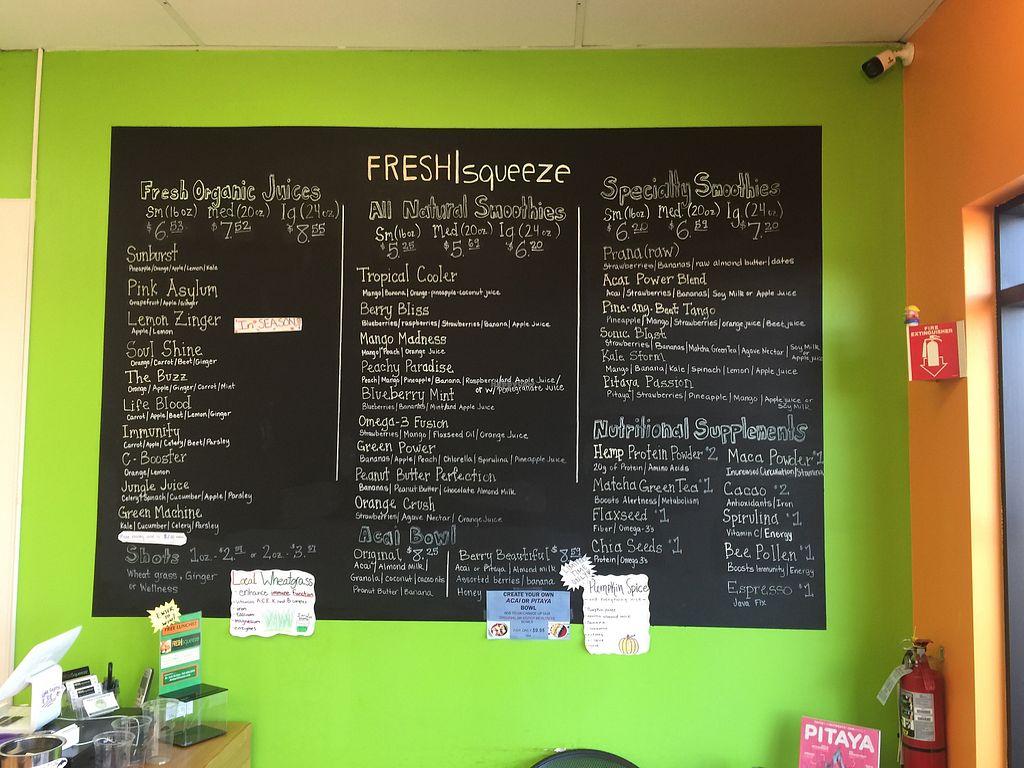 FRESH|squeeze
Fresh Organic Juices
Sm(16oz) Med(20oz) lg(24oz)
$6.53 $7.52 $8.55
Sunburst
Pineapple/Orange/Apple/Lemon/Kale
Pink Asylum
Grapefruit/Apple/Ginger
Lemon Zinger
Apple/Lemon
"In" SEASON!
Soul Shine
Orange/Carrot/Beet/Ginger
The Buzz
Orange/Apple/Ginger/Carrot/Mint
Life Blood
Carrot/Apple/Beet/Lemon/Ginger
Immunity
Carrot/Apple/Celery/Beet/Parsley
C-Booster
Orange/Lemon
Jungle Juice
Celery/Spinach/Cucumber/Apple/Parsley
Green Machine
Kale/Cucumber/Celery/Parsley
Shots 1oz. $2. or 2oz. $3.
Wheat grass, Ginger
or Wellness
All Natural Smoothies
Sm(16oz) Med(20oz) lg(24oz)
$5.25 $5.69 $6.20
Tropical Cooler
Mango|Banana|Orange-pineapple-coconut juice
Berry Bliss
Blueberries/raspberries|Strawberries|Banana|Apple Juice
Mango Madness
Mango|Peach|Orange Juice
Peachy Paradise
Peach|Mango|Pineapple|Banana|Raspberry/and Apple Juice/
or w/ Pomegranate Juice
Blueberry Mint
Blueberries|Bananas|Mint/and Apple Juice
Omega-3 Fusion
Strawberries|Mango|Flaxseed Oil|Orange Juice
Green Power
Bananas|Apple|Peach|Chlorella|Spirulina|Pineapple Juice
Peanut Butter Perfection
Bananas|Peanut Butter|Chocolate Almond Milk
Orange Crush
Strawberries|Agave Nectar|Orange Juice
Acai Bowl
Original $8.25
Acai|Almond Milk|
Granola|coconut|cacao nibs
Peanut Butter|Banana
Berry Beautiful $8.59
Acai or Pitaya|Almond Milk
Assorted berries|banana
Honey
Specialty Smoothies
Sm(16oz) Med(20oz) lg(24oz)
$6.20 $6.59 $7.20
Prana(raw)
Strawberries|Bananas|raw almond butter|dates
Acai Power Blend
Acai|Strawberries|Bananas|Soy Milk or Apple Juice
Pine-ang-Beet Tango
Pineapple|Mango|Strawberries|orange juice|Beet juice
Sonic Blast
Strawberries|Bananas|Matcha Green Tea|Agave Nectar|Soy Milk
or Apple juice
Kale Storm
Mango|Banana|Kale|Spinach|Lemon|Apple juice
Pitaya Passion
Pitaya|Strawberries|Pineapple|Mango|Apple juice or
Soy Milk
Nutritional Supplements
Hemp Protein Powder $2
20g of Protein|Amino Acids
Matcha Green Tea $1
Boosts Alertness/Metabolism
Flaxseed $1
Fiber/Omega-3's
Chia Seeds $1
Protein|Omega 3's
Maca Powder $1
Increased Circulation/Stamina
Cacao $2
Antioxidants/Iron
Spirulina $1
Vitamin C/Energy
Bee Pollen $1
Boosts Immunity|Energy
Espresso $1
Java Fix
Local Wheatgrass
- enhance immune function
- iron
- calcium
- magnesium
- enzymes
CREATE YOUR OWN
ACAI OR PITAYA
BOWL
FOR ONLY $9.95
Pumpkin Spice
FREE LUNCHES
FRESH squeeze
FIRE
EXTINGUISHER
PITAYA